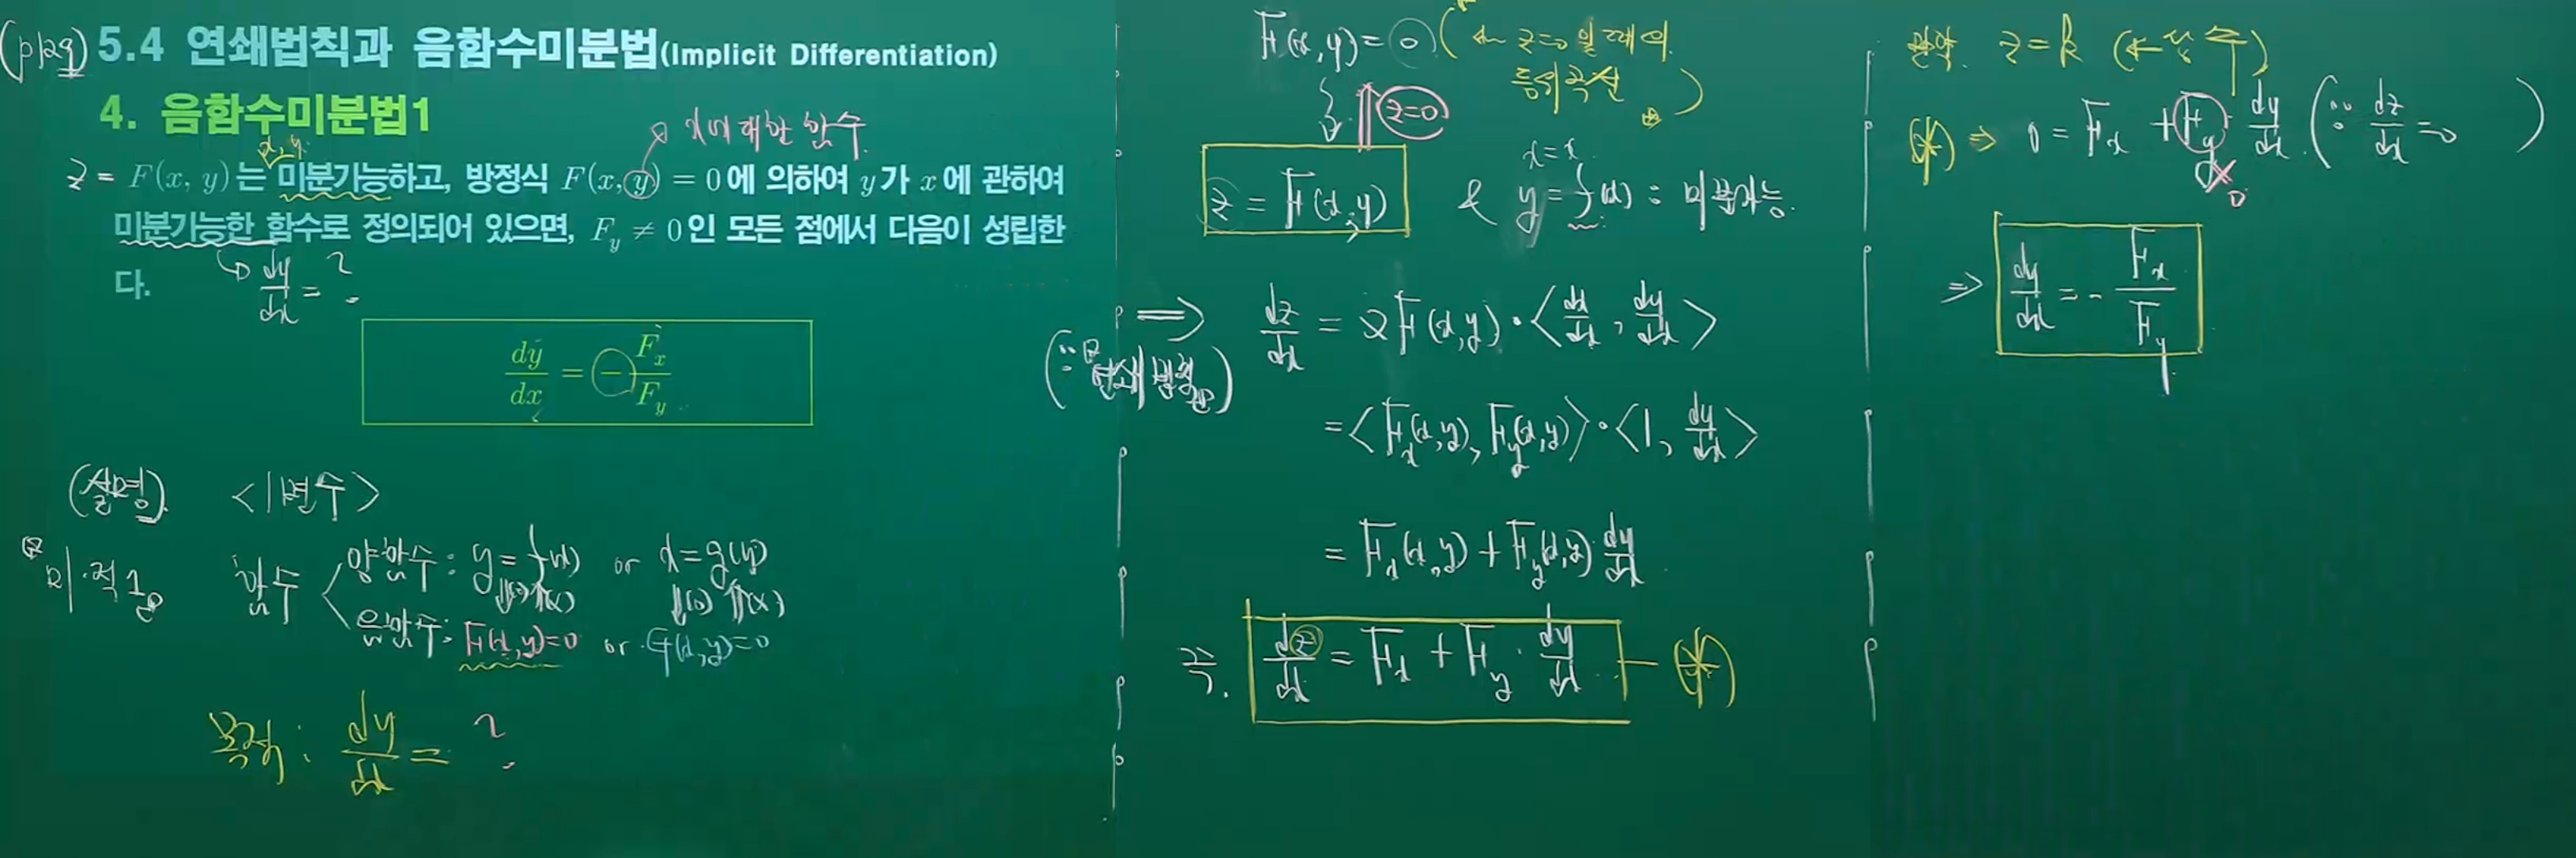 (p129) 5.4 연쇄법칙과 음함수미분법(Implicit Differentiation)
4. 음함수미분법1
x에 대한 함수
x, y
z = F(x, y)는 미분가능하고, 방정식 F(x, y) = 0에 의하여 y가 x에 관하여
미분가능한 함수로 정의되어 있으면, F_y ≠ 0인 모든 점에서 다음이 성립한
다.
dy/dx = ?
dy/dx = - F_x/F_y
(설명) <1변수>
미·적1
함수
양함수 : y = f(x) or x = g(y)
⇓(o) ⇑(x) ⇓(o) ⇑(x)
음함수 : F(x,y)=0 or G(x,y)=0
목적 : dy/dx = ?
F(x,y) = 0 (← z=0 일 때의
등위곡선)
z=0
x = x
z = F(x,y) & y = f(x) : 미분가능
⇒ dz/dx = ∇F(x,y)·<dx/dx, dy/dx>
(∵ 연쇄법칙)
= <F_x(x,y), F_y(x,y)>·<1, dy/dx>
= F_x(x,y) + F_y(x,y) dy/dx
즉. dz/dx = F_x + F_y · dy/dx — (*)
만약 z = k (← 상수)
(*) ⇒ 0 = F_x + F_y · dy/dx (∵ dz/dx = 0)
≠ 0
⇒ dy/dx = - F_x/F_y